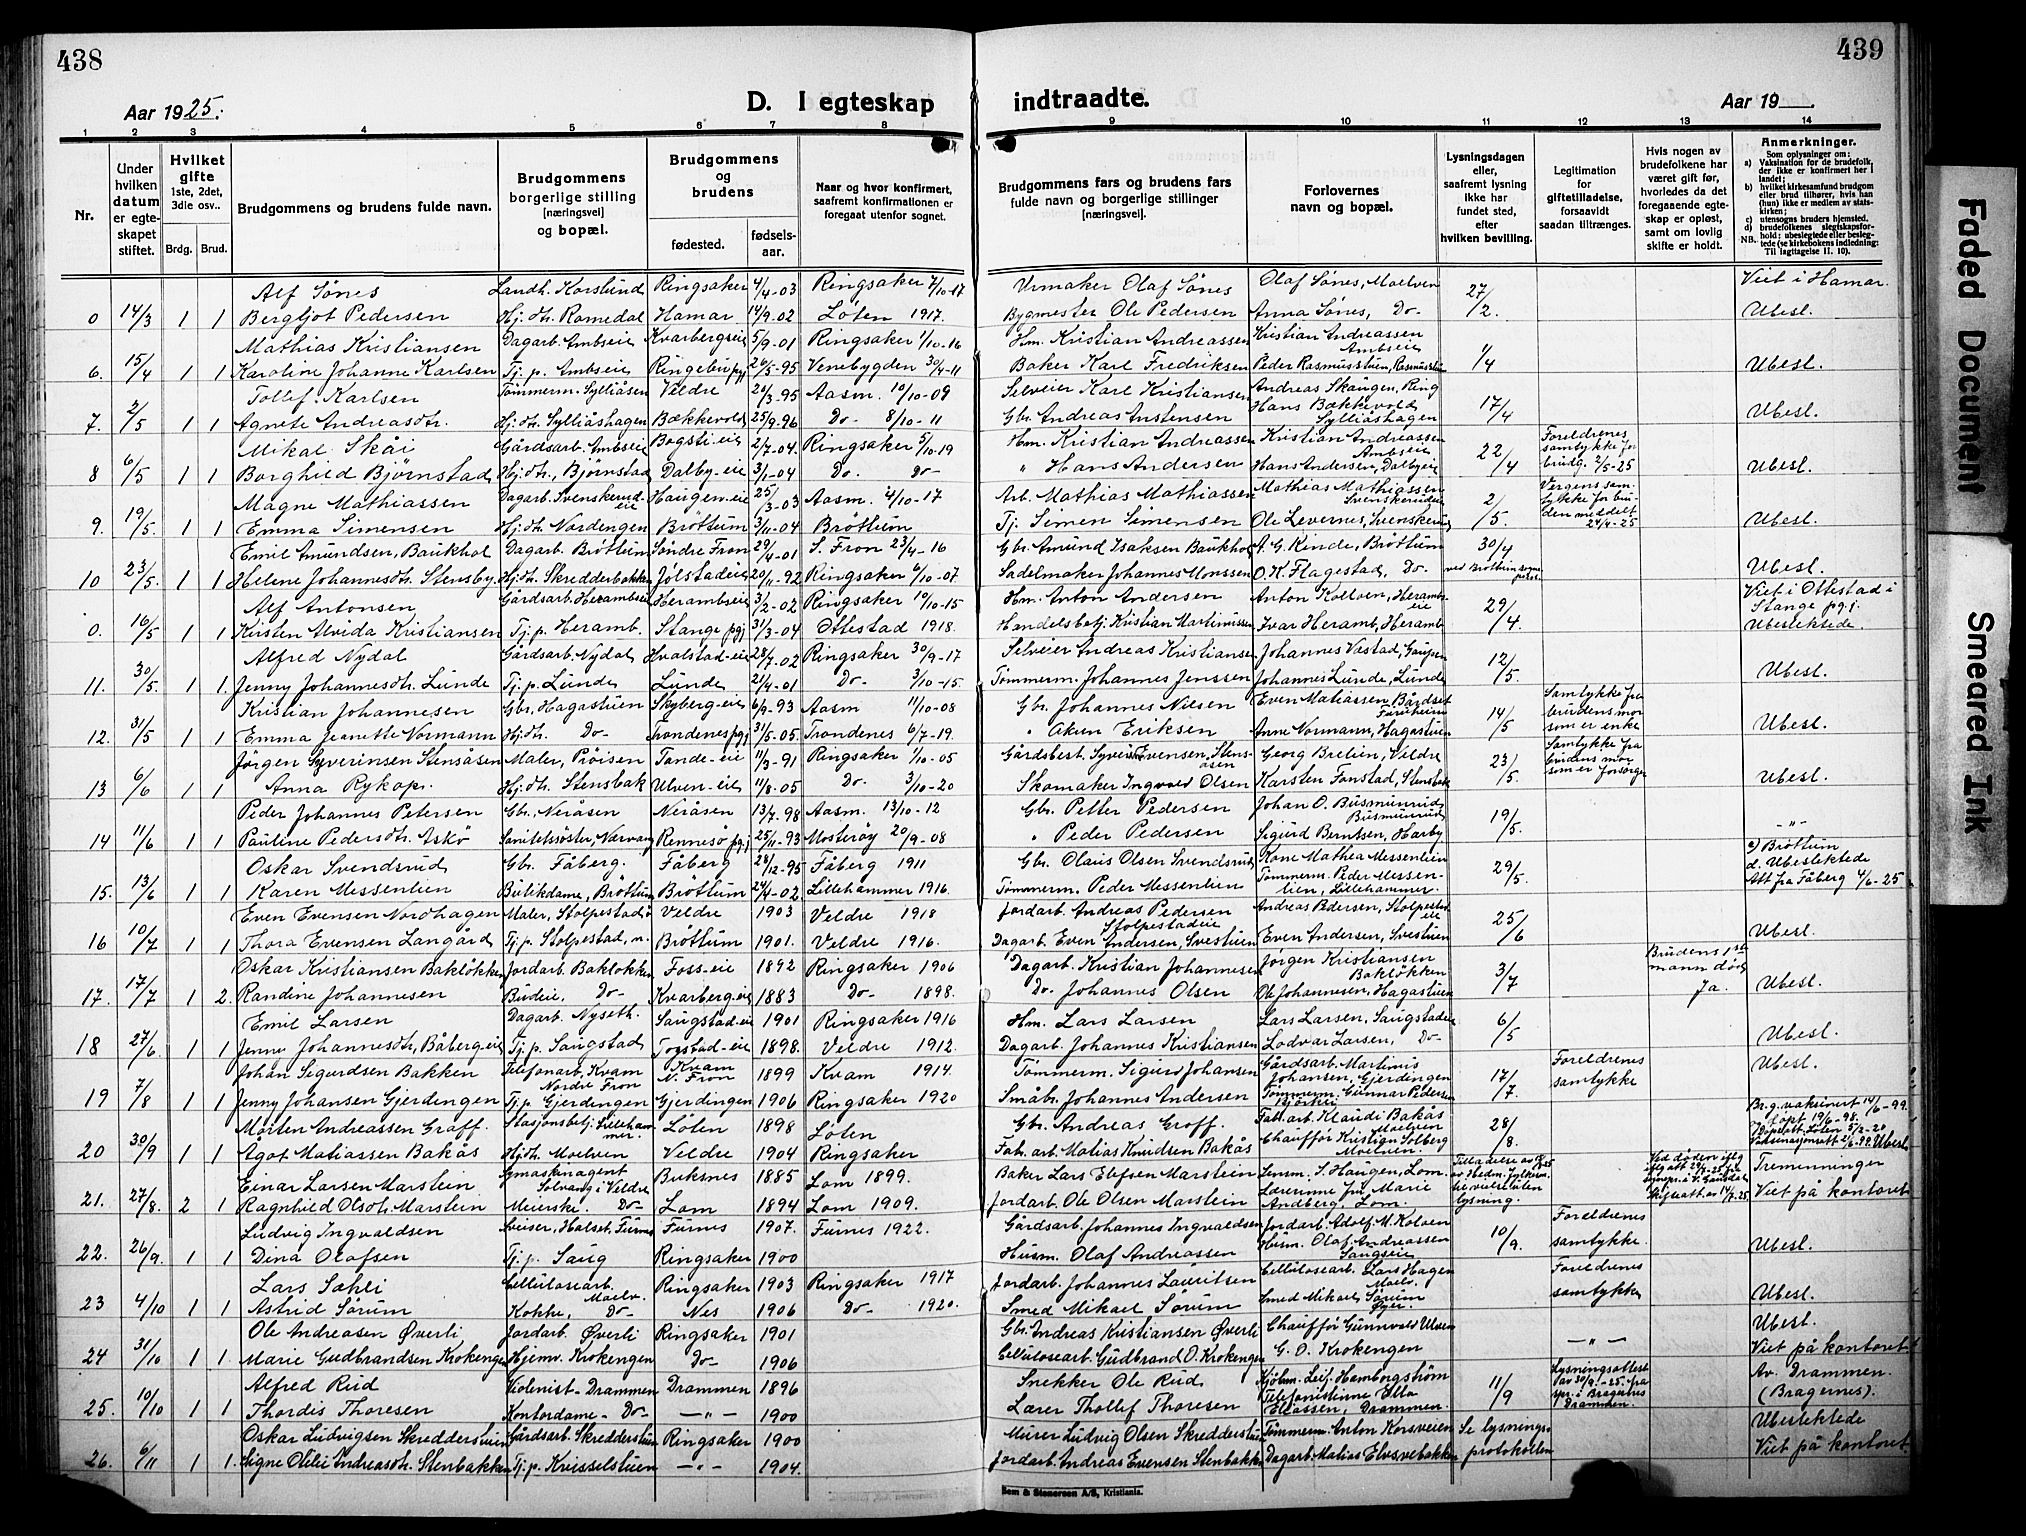 438
Aar 1925.
D. I egteskap
1 2 3 4 5 6 7 8
Nr.
Under hvilken datum er egteskapet stiftet.
Hvilket gifte 1ste, 2det, 3die osv..
Brdg. Brud.
Brudgommens og brudens fulde navn.
Brudgommens borgerlige stilling [næringsvei] og bopæl.
Brudgommens og brudens
fødested. fødselsaar.
Naar og hvor konfirmert, saafremt konfirmationen er foregaat utenfor sognet.
Alf Sønes Landh. Korslund Ringsaker 4/4-03 Ringsaker 7/10-17
0 14/3 1 1 Bergljot Pedersen Hj. dtr. Romedal Hamar 14/9.02 Løten 1917.
Mathias Kristiansen Dagarb. Ambseie Kvarbergseie 5/9-01 Ringsaker 1/10-16
6. 15/4 1 1 Karoline Johanne Karlsen Tj. p. Ambseie Ringebu pgj 26/5-95 Venebygden 30/4-11
Tollef Karlsen Tømmerm. Sylliåsen Veldre 20/3-95 Aasm. 10/10-09
7. 2/5 1 1 Agnete Andreasdtr. Hj. dtr. Sylliåshagen Bækkevold 25/9-96 Do- 8/10-11
Mikal Skåi Gårdsarb. Ambseie Bogsti-eie 2/7-04. Ringsaker 5/10-19
8 6/5 1 1 Borghild Bjørnstad Hj. dtr., Bjørnstad Dalby-eie 3/1-04 Do- do-
Magne Mathiassen Dagarb. Svenskerud-eie Haugen-eie 25/3-03 Aasm. 4/10-17
9. 19/5. 1 1 Emma Simensen Hj. dtr. Nordengen Brøttum 3/11-04 Brøttum
Emil Amundsen, Baukhol Dagarb. Brøttum Søndre Fron 29/4-01 S. Fron 23/4-16
10 23/5. 1 1 Helene Johannesdtr. Stensby Hj. dtr. Skredderbakken Jølstadeie 20/11-92 Ringsaker 6/10-07.
Alf Antonsen Gårdsarb. Herambseie Herambseie 3/2-02 Ringsaker 10/10-15
0. 16/5 1 1 Kirsten Alvida Kristiansen Tj. p. Heramb. Stange pgj 31/3-04 Ottestad 1918.
Alfred Nydal Gårdsarb. Nydal Hvalstad-eie 28/7-02 Ringsaker 30/9-17
11. 30/5. 1 1. Jenny Johannesdtr. Lunde Tj. p. Lunde Lunde 21/4-01 Do- 3/10-15.
Kristian Johannesen Gbr. Hagastuen Skyberg-eie 6/9-93 Aasm 11/10-08
12. 31/5 1 1 Emma Jeanette Normann Hj. dtr. Do- Trondenes pgj 31/5-05. Trondenes 6/7-19.
Jørgen Syverinsen Stensåsen Maler, Prøisen Tande-eie 11/3-91 Ringsaker 1/10-05
13 6/6 1 1 Anna Rykop. Hj. dtr. Stensbak Ulven-eie 11/8-05 Do. 3/10-20
Peder Johannes Petersen Gbr., Neråsen Neråsen 13/7-98 Aasm. 13/10-12
14 11/6 1 1 Pauline Pedersdtr. Askø Sanitetssøster, Nærvang Rennesø pgj. 25/11-93 Mosterøy 20/9-08
Oskar Svendsrud Gbr. Fåberg. Fåberg 28/12-95 Fåberg 1911
15. 13/6 1 1 Karen Messenlien Butikdame, Brøttum Brøttum 27/4-02. Lillehammer 1916.
Even Evensen Nordhagen Maler, Stolpestad Veldre 1903 Veldre 1918
16 10/7 1 1 Thora Evensen Langård Tj. p. Stolpestad, n. Brøttum 1901. Veldre 1916.
Oskar Kristiansen Bakløkken Jordarb. Bakløkken Foss-eie 1892 Ringsaker 1906
17. 17/7 1 2. Randine Johannesen Budeie, Do- Kvarberg-eie 1883 Do- 1898.
Emil Larsen Dagarb. Nyseth. Saugstad-eie 1901 Ringsaker 1916
18 27/6. 1 1 Jenny Johannesdtr, Båberg-eie Tj. p. Saugstad Togstad-eie 1898. Veldre 1912.
Johan Sigurdsen Bakken Telefonarb. Kvam Nordre Fron Kvam N. Fron 1899 Kvam 1914.
19 7/8 1 1 Jenny Johansen Gjerdingen Tj. p. Gjerdingen Gjerdingen 1906 Ringsaker 1920
Morten Andreassen Graff. Stasjonsbetj. Lillehammer. Løten 1898 Løten
20 30/9 1 1 Ågot Matiassen Bakås Hj. dtr. Moelven Veldre 1904 Ringsaker
Einar Larsen Marstein Symaskinagent Solvang i Veldre Buksnes 1885 Lom 1899.
21. 27/8. 2 1 Ragnhild Olsdtr. Marstein Meierske. Do- Lom 1894 Lom 1909.
Ludvig Ingvaldsen Sveiser, Halset, Furnes Furnes 1907. Furnes 1922.
22. 26/9. 1 1 Dina Olafsen Tj. p. Saug Ringsaker 1900
Lars Sæhli Cellulosearb. Moelv. Ringsaker 1903 Ringsaker 1917
23 4/10 1 1 Astrid Sørum Kokke, Do- Nes 1906 Do- 1920.
Ole Andreasen Øverli Jordarb. Øverli Ringsaker 1901
24 31/10 1 1 Marie Gudbrandsen Krokengen Hjemv. Krokengen Do- 1906
Alfred Rud Violinist-Drammen Drammen 1896
25. 10/10 1 1 Thordis Thoresen Kontordame- Do- -„- 1900
Oskar Ludvigsen Skredderstuen Gårdsarb. Skredderstuen Ringsaker 1900
26. 6/11 1 1. Signe Otelie Andreasdtr. Stenbakken Tj. p. Knisselstuen -„- 1904.
439
indtraadte.
Aar 19 .
9 10 11 12 13 14
Brudgommens fars og brudens fars fulde navn og borgerlige stillinger [næringsvei].
Forlovernes navn og bopæl.
Lysningsdagen eller, saafremt lysning ikke har fundet sted, efter hvilken bevilling.
Legitimation for giftetilladelse, forsaavidt saadan tiltrænges.
Hvis nogen av brudefolkene har været gift før, hvorledes da det foregaaende egteskap er opløst, samt om lovlig skifte er holdt.
Anmerkninger.
Som oplysninger om:
a) Vaksination for de brudefolk, der ikke er konfirmert her i landet;
b) hvilket kirkesamfund brudgom eller brud tilhører, hvis han (hun) ikke er medlem av statskirken;
c) utensogns bruders hjemsted.
d) brudefolkenes slegtskapsforhold: ubeslegtede eller beslegtede (se kirkebokens indledning: Til iagttagelse II. 10).
NB.
Urmaker Olaf Sønes Olaf Sønes, Moelven 27/2. Viet i Hamar.
Bygmester Ole Pedersen Anna Sønes, Do- Ubesl.
Hm. Kristian Andreassen Kristian Andreassen Ambseie 1/4
Baker Karl Fredriksen Peder Rasmusstuen, Rasmusstuen Ubesl.
Selveier Karl Kristiansen Andreas Skaugen, Ring 17/4
Gbr. Andreas Anstensen Hans Bækkevold Sylliåshagen Ubesl.
Hm. Kristian Andreassen Kristian Andreassen Ambseie 22/4 Foreldrenes samtykke for brudg. 2/5-25
„ Hans Andersen Hans Andersen, Dalbyeie Ubesl.
Arb. Mathias Mathiassen Mathias Mathiassen Svenskerudeie 2/5. Vergens samtykke for bruden meddelt 24/4-25
Tj. Simen Simensen Ole Levernes, Svenskerud Ubesl.
Gbr. Amund Isaksen Baukhol A. G. Kinde, Brøttum 30/4
Sadelmaker Johannes Monssen O. K. Flagestad, Do- ved Brøttum sogneprest. Ubesl.
Hm. Anton Andersen Anton Kolloen, Herambseie 29/4. Viet i Ottestad i Stange pgj.
Handelsbetj. Kristian Martinussen Ivar Heramb, Heramb Ubeslektede.
Selveier Andreas Kristiansen Johannes Vastad, Gaupen 12/5.
Tømmerm. Johannes Jenssen Johannes Lunde, Lunde Ubesl.
Gbr. Johannes Nilsen Even Matiassen, Bårdset Furuheim 14/5 Samtykke fra brudens mor som er enke
„ Akun Eriksen Anne Normann, Hagastuen Ubesl.
Gårdsbest. Syverin Evensen, Stensåsen Georg Brelien, Veldre 23/5. Samtykke fra brudens mor som er forsørger
Skomaker Ingvald Olsen Karsten Fonstad, Stensbak Ubesl.
Gbr. Petter Pedersen Johan O. Busmunrud Busmunrud 19/5.
„ Peder Pedersen Sigurd Berntsen, Harby -„-
Gbr. Olaus Olsen Svendsrud Kone Mathea Messenlien 29/5. c) Brøttum
Tømmerm. Peder Messenlien Tømmerm. Peder Messenlien, Lillehammer. d. Ubeslektede Att fra Fåberg 4/6-25
Jordarb. Andreas Pedersen Stolpestadeie Andreas Pedersen, Stolpestadeie 25/6
Dagarb. Even Andersen, Svestuen Even Andersen, Svestuen Ubesl.
Dagarb. Kristian Johannesen Jørgen Kristiansen Bakløkken 3/7 Brudens 1ste mann død
Do. Johannes Olsen Ole Johannesen, Hagastuen Ja. Ubesl.
Hm. Lars Larsen Lars Larsen, Saugstadeie 6/5
Dagarb. Johannes Kristiansen Lodvar Larsen, Do- Ubesl.
Tømmerm. Sigurd Johansen Gårdsarb. Martinus Johansen, Gjerdingen 17/7. Foreldrenes samtykke Ubesl.
Småbr. Johannes Andersen Tømmerm. Gunnar Pedersen
Gbr. Andreas Groff. Fab. arb. Klaudi Bakås Moelven 28/8. Br.g. vaksinert 14/6-99.
Fab. arb. Matias Knudsen Bakås Chauffør Kristian Solberg Moelven. Ubesl.
Baker Lars Elefsen Marstein Snm. S. Haugen, Lom. Tremenninger
Jordarb. Ole Olsen Marstein Lærerinne frk Marie Andberg, Lom lysning. Viet på kontoret
Gårdsarb. Johannes Ingvaldsen Jordarb. Adolf M. Koloen 10/9. Foreldrenes samtykke.
Husm. Olaf Andreassen Husm. Olaf Andreassen Saugseie Ubesl.
Jordarb. Johannes Lauritsen Cellulosearb. Lars Hagen Moelv. Foreldrenes samtykke
Smed Mikael Sørum Smed Mikael Sørum Øyer. Ubesl.
Gbr. Andreas Kristiansen Øverli Chauffør Gunnvald Ulven Ubesl.
Cellulosearb. Gudbrand O. Krokengen G. O. Krokengen -„- Viet på kontoret
Snekker Ole Rud Kjølm. Leif Hamborgstrøm 11/9 Lysningsattest av 30/9.-25. fra spr. i Bragernes Drammen. Av. Drammen.
Lærer Thollef Thoresen Telefonistinne Ella Eliassen, Drammen. (Bragernes).
Murer Ludvig Olsen Skredderstuen Tømmerm. Anton Korsveien Se lysnings- Ubeslektede
Jordarb. Andreas Evensen Stenbakken Dagarb. Matias Elvsvebakken protokollen Viet på kontoret
Sem & Stenersen A/S, Kristiania.
Faded Document
Smeared Ink